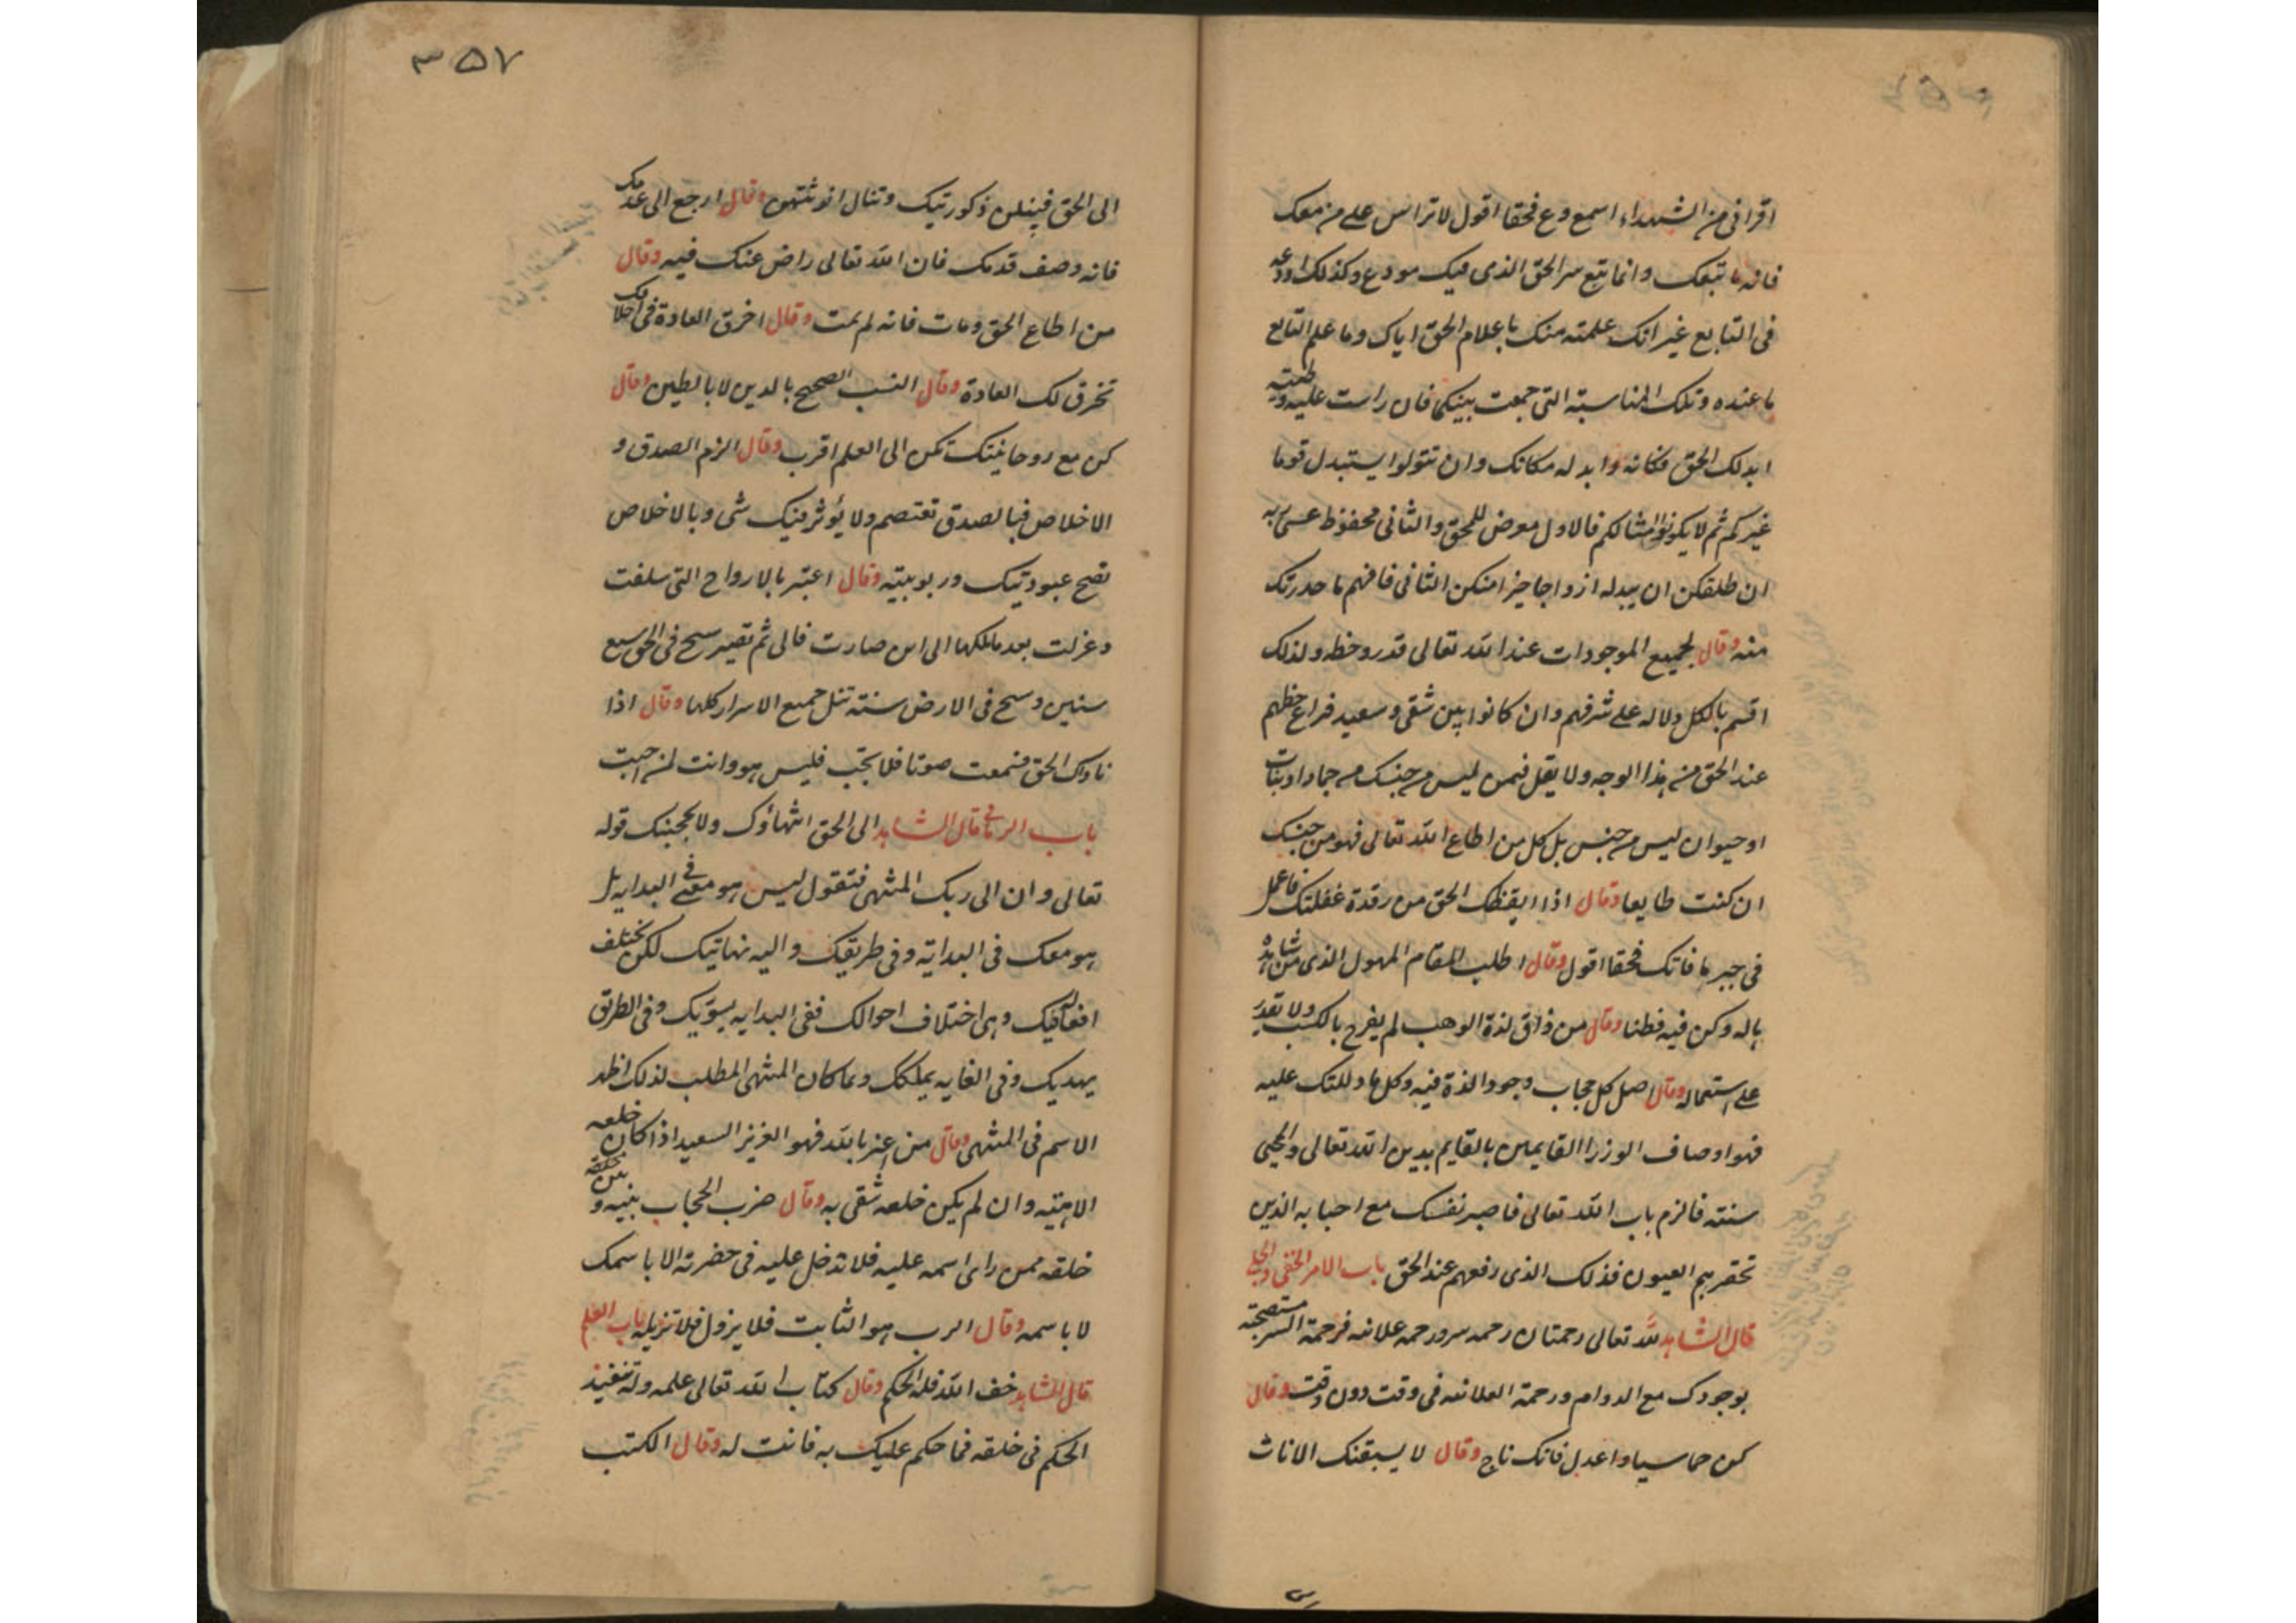 اقرانی من الشهداء اسمع وع فحقا اقول لا تراس علے من معک
فانه ما تبعک وانما تبع سر الحق الذی فیک مودع وکذلک اودعه
فی التابع غیر انک علمته منک باعلام الحق ایاک وما علم التابع
ما عنده وتلک المناسبة التی جمعت بینکما فان راست علیه وطعته
ابدلک الحق مکانه وابدله مکانک وان تتولوا یستبدل قوما
غیرکم ثم لا یکونوا امثالکم فالاول معرض للمحق والثانی محفوظ عسی ربه
ان طلقکن ان یبدله ازواجا خیرا منکن الثانی فافهم ما حدرتک
منه وقال لجمیع الموجودات عند الله تعالی قدر وخطر ولذلک
اقسم بالکل دلاله علے شرفهم وان کانوا بین شقی وسعید فراع حظهم
عند الحق من هذا الوجه ولا یقل فیمن لیس من جنسک من جماد او نبات
او حیوان لیس من جنس بل کل من اطاع الله تعالی فهو من جنسک
ان کنت طایعا وقال اذا ایقظک الحق من رقدة غفلتک فاعمل
فی جبر ما فاتک فحقا اقول وقال اطلب المقام المهول الذی من شاهده
باله وکن فیه فطنا وقال من ذاق لذة الوهب لم یفرح بالکسب ولا تقدر
علے استعماله وقال اصل کل حجاب وجود الذة فیه وکل ما دللتک علیه
فهو اوصاف الوزرا القایمین بالقایم بدین الله تعالی والمحیی
سنته فالزم باب الله تعالی فاصبر نفسک مع احبابه الذین
تحقرهم العیون فذلک الذی رفعهم عند الحق باب الامر الخفی والجلی
قال الشاهد لله تعالی رحمتان رحمه سر ورحمه علانیه فرحمة السر مستصحبته
بوجودک مع الدوام ورحمة العلانیه فی وقت دون وقت وقال
کن حماسیا واعدل فانک ناج وقال لا یسبقنک الاناث
۳۵۷
الی الحق فینلن ذکورتیک وتنال انوثتهن وقال ارجع الی عدمک
فانه وصف قدمک فان الله تعالی راض عنک فیه وقال
من اطاع الحق ومات فانه لم یمت وقال اخرق العادة فی اخلاقک
تخرق لک العادة وقال النسب الصحیح بالدین لا بالطین وقال
کن مع روحانیتک تکن الی العلم اقرب وقال الزم الصدق و
الاخلاص فبالصدق تعتصم ولا یؤثر فیک شی وبالاخلاص
تصح عبودتیک وربوبیته وقال اعتبر بالارواح التی سلفت
وعزلت بعد ملکها الی این صارت فالی ثم تصیر سح فی الحق سبع
سنین وسح فی الارض سنته تنل جمیع الاسرار کلها وقال اذا
ناداک الحق فسمعت صوتا فلا تجب فلیس هو وانت لمن اجبت
باب قال الشاهد الی الحق انتهاؤک ولا یحجبنک قوله
تعالی وان الی ربک المنتهی فتقول لیس هو معی فی البدایه بل
هو معک فی البدایة وفی طریقک والیه نهایتک لکن تختلف
افعاله فیک وهی اختلاف احوالک ففی البدایه یسویک وفی الطریق
یهدیک وفی الغایه یملکک وما کان المنتهی المطلب لذلک اظهر
الاسم فی المنتهی وقال من اعتز بالله فهو العزیز السعید اذا کان خلعه
الاهیته وان لم یکن خلعه شقی به وقال ضرب الحجاب بینه و بین
خلقه فمن رای اسمه علیه فلا تدخل علیه فی حضرته الا باسمک
لا باسمه وقال الرب هو الثابت فلا یزول فلا تزیله باب العلم
قال الشاهد خف الله فله الحکم وقال کتاب الله تعالی علمه وله تنفیذ
الحکم فی خلقه فما حکم علیک به فانت له وقال الکتب